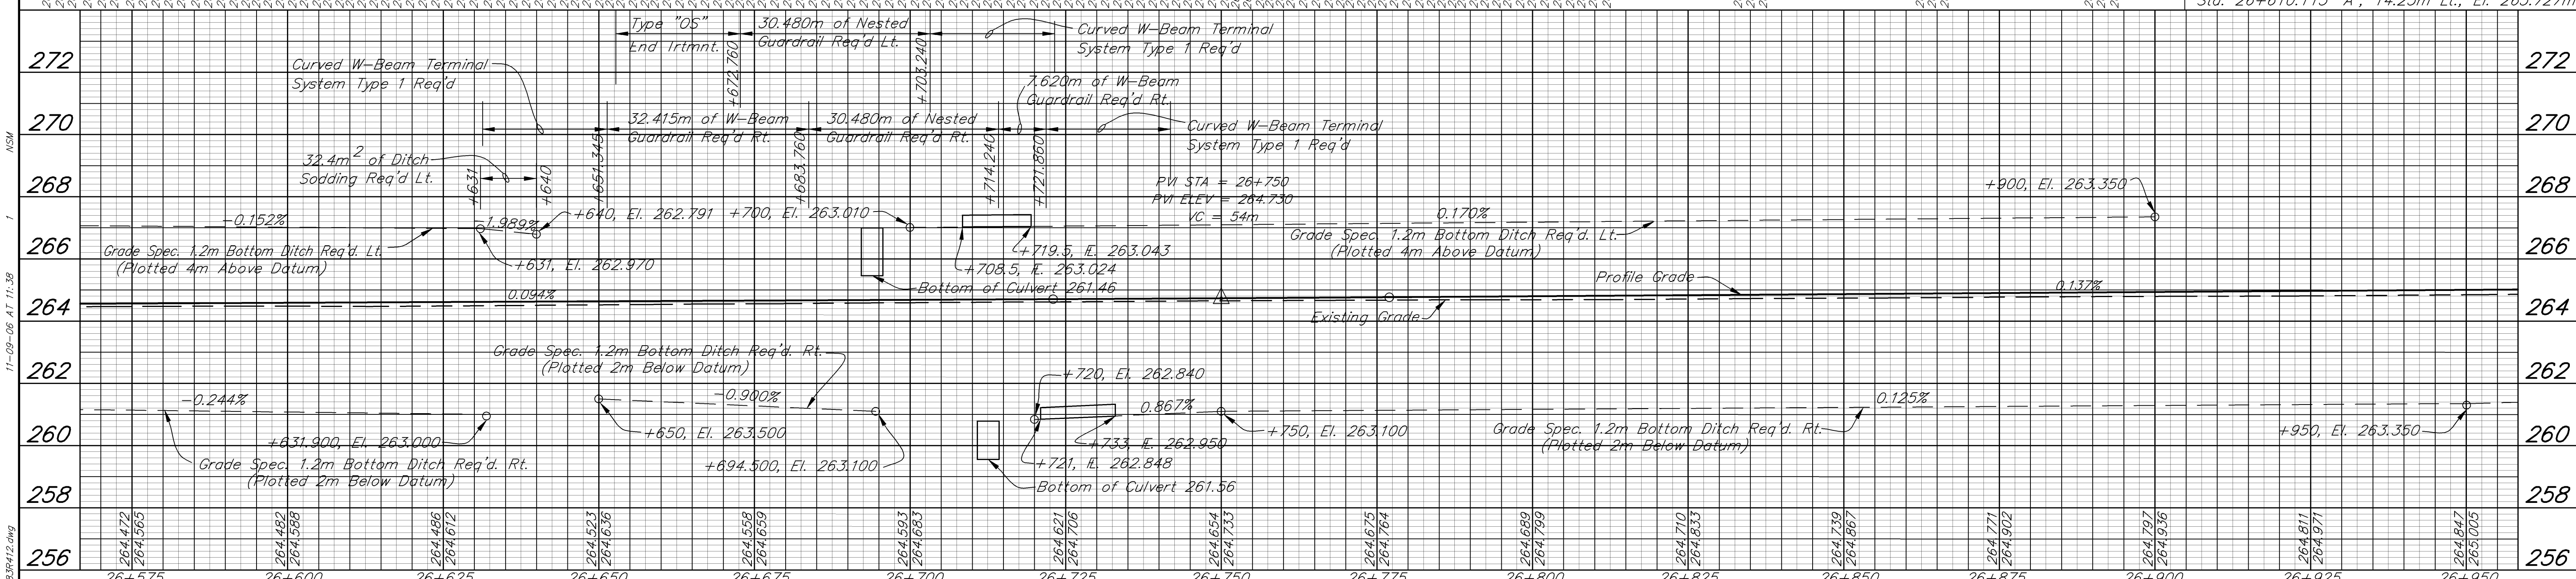 Sta. 26+610.115 "A", 14.25m Lt., El. 263.927m
Type "OS"
End Trtmnt.
+672.760
30.480m of Nested
Guardrail Req'd Lt.
+703.240
Curved W-Beam Terminal
System Type 1 Req'd
272
272
Curved W-Beam Terminal
System Type 1 Req'd
7.620m of W-Beam
Guardrail Req'd Rt.
270
270
32.415m of W-Beam
Guardrail Req'd Rt.
30.480m of Nested
Guardrail Req'd Rt.
Curved W-Beam Terminal
System Type 1 Req'd
32.4m2 of Ditch
Sodding Req'd Lt.
+631
+640
+651.345
+683.760
+714.240
+721.860
268
268
PVI STA = 26+750
PVI ELEV = 264.730
VC = 54m
+900, El. 263.350
-0.152%
-1.989%
+640, El. 262.791
+700, El. 263.010
0.170%
266
266
Grade Spec. 1.2m Bottom Ditch Req'd. Lt.
(Plotted 4m Above Datum)
+631, El. 262.970
+719.5, IE. 263.043
+708.5, IE. 263.024
Grade Spec. 1.2m Bottom Ditch Req'd. Lt.
(Plotted 4m Above Datum)
Bottom of Culvert 261.46
Profile Grade
0.094%
0.137%
264
264
Existing Grade
Grade Spec. 1.2m Bottom Ditch Req'd. Rt.
(Plotted 2m Below Datum)
262
262
+720, El. 262.840
-0.244%
-0.900%
0.867%
0.125%
260
260
+631.900, El. 263.000
+650, El. 263.500
+694.500, El. 263.100
+733, IE. 262.950
+721, IE. 262.848
+750, El. 263.100
Grade Spec. 1.2m Bottom Ditch Req'd. Rt.
(Plotted 2m Below Datum)
+950, El. 263.350
Grade Spec. 1.2m Bottom Ditch Req'd. Rt.
(Plotted 2m Below Datum)
Bottom of Culvert 261.56
258
258
264.472
264.565
264.482
264.588
264.486
264.612
264.523
264.636
264.558
264.659
264.593
264.683
264.621
264.706
264.654
264.733
264.675
264.764
264.689
264.799
264.710
264.833
264.739
264.867
264.771
264.902
264.797
264.936
264.811
264.971
264.847
265.005
256
256
26+575
26+600
26+625
26+650
26+675
26+700
26+725
26+750
26+775
26+800
26+825
26+850
26+875
26+900
26+925
26+950
NSM
1
11-09-06 AT 11:38
83R412.dwg